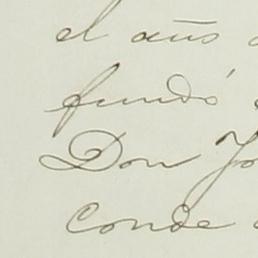 el año
fundó
Don Jo
Conde